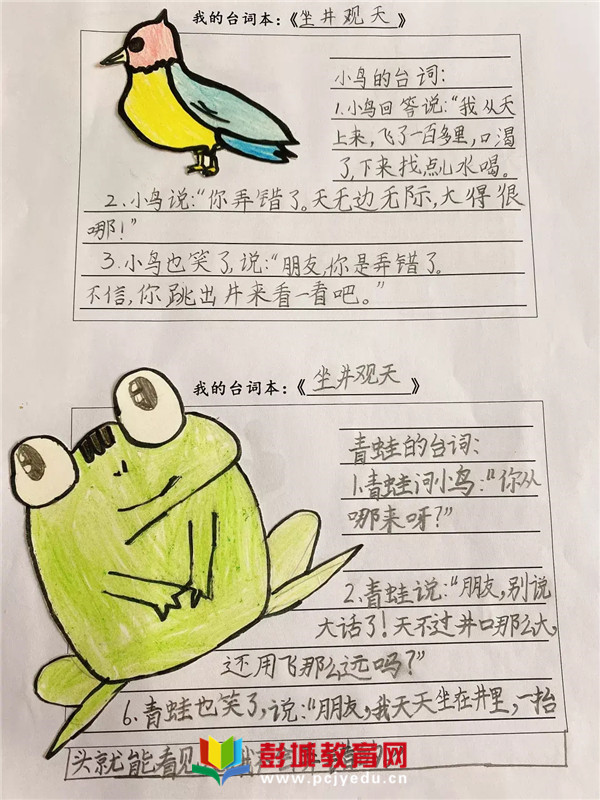 我的台词本：《坐井观天》
小鸟的台词：
1.小鸟回答说：“我从天
上来，飞了一百多里，口渴
了，下来找点儿水喝。
2.小鸟说：“你弄错了。天无边无际，大得很
哪！”
3.小鸟也笑了，说：“朋友，你是弄错了。
不信，你跳出井来看一看吧。”
我的台词本：《坐井观天》
青蛙的台词：
1.青蛙问小鸟：“你从
哪来呀？”
2.青蛙说：“朋友，别说
大话了！天不过井口那么大，
还用飞那么远吗？”
6.青蛙也笑了，说：“朋友，我天天坐在井里，一抬
头就能看见
彭城教育网
www.pcjyedu.cn